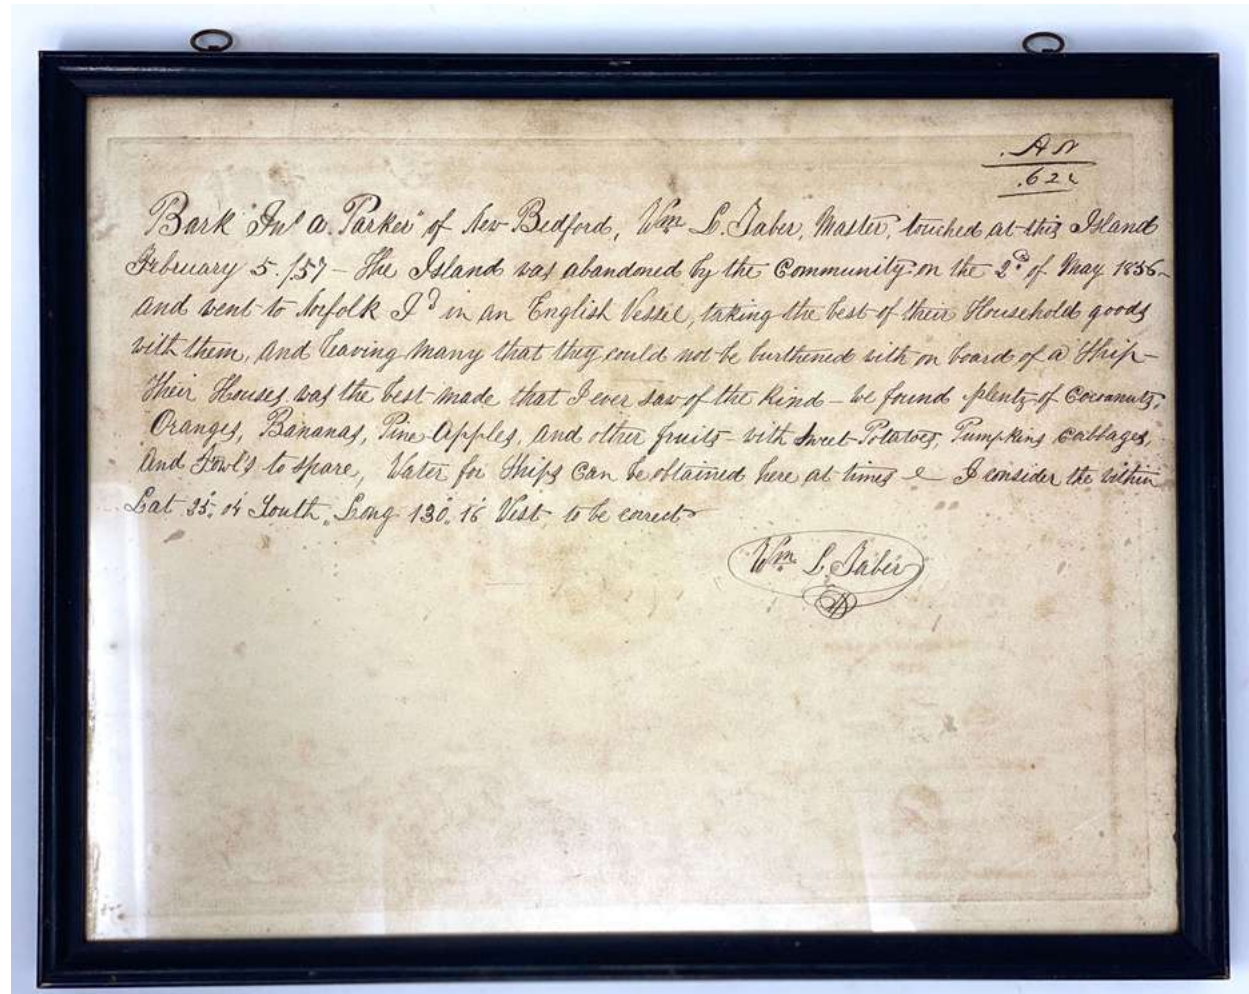 A N
.62
Bark "Jnº A. Parker" of New Bedford, Wm L. Taber, Master, touched at this Island
February 5. /57 – The Island was abandoned by the Community on the 2d of May 1856 –
and went to Norfolk Id in an English Vessel, taking the best of their Household goods
with them, and leaving many that they could not be burthened with on board of a Ship –
Their Houses was the best made that I ever saw of the kind – we found plenty of Cocoanuts,
Oranges, Bananas, Pine Apples, and other fruits – with Sweet Potatoes, Pumpkins Cabbages,
And Fowl's to spare, Water for Ships Can be obtained here at times – I consider the within
Lat 25°. 04' South, Long 130°. 16' West, to be correct –
Wm L. Taber